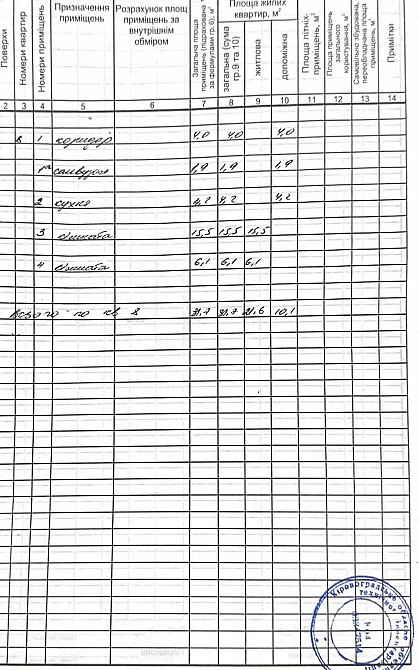 Поверхи
Номери квартир
Номери приміщень
Призначення приміщень
Розрахунок площ приміщень за внутрішнім обміром
Загальна площа приміщень (підрахована за формулами гр.6), м²
Площа жилих квартир, м²
загальна (сума гр.9 та 10)
житлова
допоміжна
Площа літніх приміщень, м²
Площа приміщень загального користування, м²
Самовільно збудована, переобладнана площа приміщень, м²
Примітки
2 3 4 5 6 7 8 9 10 11 12 13 14
8 1 коридор 4,0 4,0 4,0
1а санвузол 1,9 1,9 1,9
2 кухня 4,2 4,2 4,2
3 кімната 15,5 15,5 15,5
4 кімната 6,1 6,1 6,1
Всього по кв 8 31,7 31,7 21,6 10,1
Кіровоградське обласне
технічної інвентаризації
Код